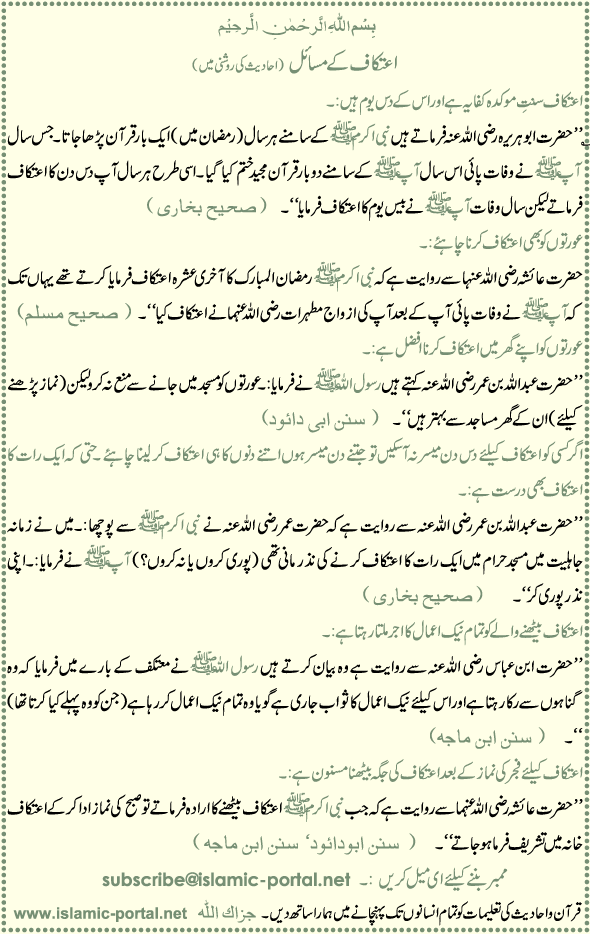 بِسْمِ اللهِ الرَّحْمٰنِ الرَّحِيْمِ
اعتکاف کے مسائل (احادیث کی روشنی میں)
اعتکاف سنتِ موکدہ کفایہ ہے اور اس کے دس یوم ہیں:۔
’’حضرت ابوہریرہ رضی اللہ عنہ فرماتے ہیں نبی اکرم ﷺ کے سامنے ہر سال (رمضان میں) ایک بار قرآن پڑھا جاتا۔ جس سال
آپ ﷺ نے وفات پائی اس سال آپ ﷺ کے سامنے دو بار قرآن مجید ختم کیا گیا۔ اسی طرح ہر سال آپ دس دن کا اعتکاف
فرماتے لیکن سال وفات آپ ﷺ نے بیس یوم کا اعتکاف فرمایا‘‘۔ (صحیح بخاری)
عورتوں کو بھی اعتکاف کرنا چاہئے:۔
حضرت عائشہ رضی اللہ عنہا سے روایت ہے کہ نبی اکرم ﷺ رمضان المبارک کا آخری عشرہ اعتکاف فرمایا کرتے تھے یہاں تک
کہ آپ ﷺ نے وفات پائی آپ کے بعد آپ کی ازواج مطہرات رضی اللہ عنہما نے اعتکاف کیا‘‘۔ (صحیح مسلم)
عورتوں کو اپنے گھر میں اعتکاف کرنا افضل ہے:۔
’’حضرت عبداللہ بن عمر رضی اللہ عنہ کہتے ہیں رسول اللہ ﷺ نے فرمایا:۔ عورتوں کو مسجد میں جانے سے منع نہ کرو لیکن (نماز پڑھنے
کیلئے) ان کے گھر مساجد سے بہتر ہیں‘‘۔ (سنن ابی دائود)
اگر کسی کو اعتکاف کیلئے دس دن میسر نہ آسکیں تو جتنے دن میسر ہوں اتنے دنوں کا ہی اعتکاف کر لینا چاہئے۔ حتی کہ ایک رات کا
اعتکاف بھی درست ہے:۔
’’حضرت عبداللہ بن عمر رضی اللہ عنہ سے روایت ہے کہ حضرت عمر رضی اللہ عنہ نے نبی اکرم ﷺ سے پوچھا:۔ میں نے زمانہ
جاہلیت میں مسجد حرام میں ایک رات کا اعتکاف کرنے کی نذر مانی تھی (پوری کروں یا نہ کروں؟) آپ ﷺ نے فرمایا:۔ اپنی
نذر پوری کر‘‘۔ (صحیح بخاری)
اعتکاف بیٹھنے والے کو تمام نیک اعمال کا اجر ملتا رہتا ہے:۔
’’حضرت ابن عباس رضی اللہ عنہ سے روایت ہے وہ بیان کرتے ہیں رسول اللہ ﷺ نے معتکف کے بارے میں فرمایا کہ وہ
گناہوں سے رکا رہتا ہے اور اس کیلئے نیک اعمال کا ثواب جاری ہے گویا وہ تمام نیک اعمال کر رہا ہے (جن کو وہ پہلے کیا کرتا تھا)
‘‘۔ (سنن ابن ماجه)
اعتکاف کیلئے فجر کی نماز کے بعد اعتکاف کی جگہ بیٹھنا مسنون ہے:۔
’’حضرت عائشہ رضی اللہ عنہا سے روایت ہے کہ جب نبی اکرم ﷺ اعتکاف بیٹھنے کا ارادہ فرماتے تو صبح کی نماز ادا کر کے اعتکاف
خانہ میں تشریف فرما ہو جاتے‘‘۔ (سنن ابودائود‘ سنن ابن ماجه)
ممبر بننے کیلئے ای میل کریں :۔ subscribe@islamic-portal.net
قرآن و احادیث کی تعلیمات کو تمام انسانوں تک پہنچانے میں ہمارا ساتھ دیں۔ جزاك الله www.islamic-portal.net